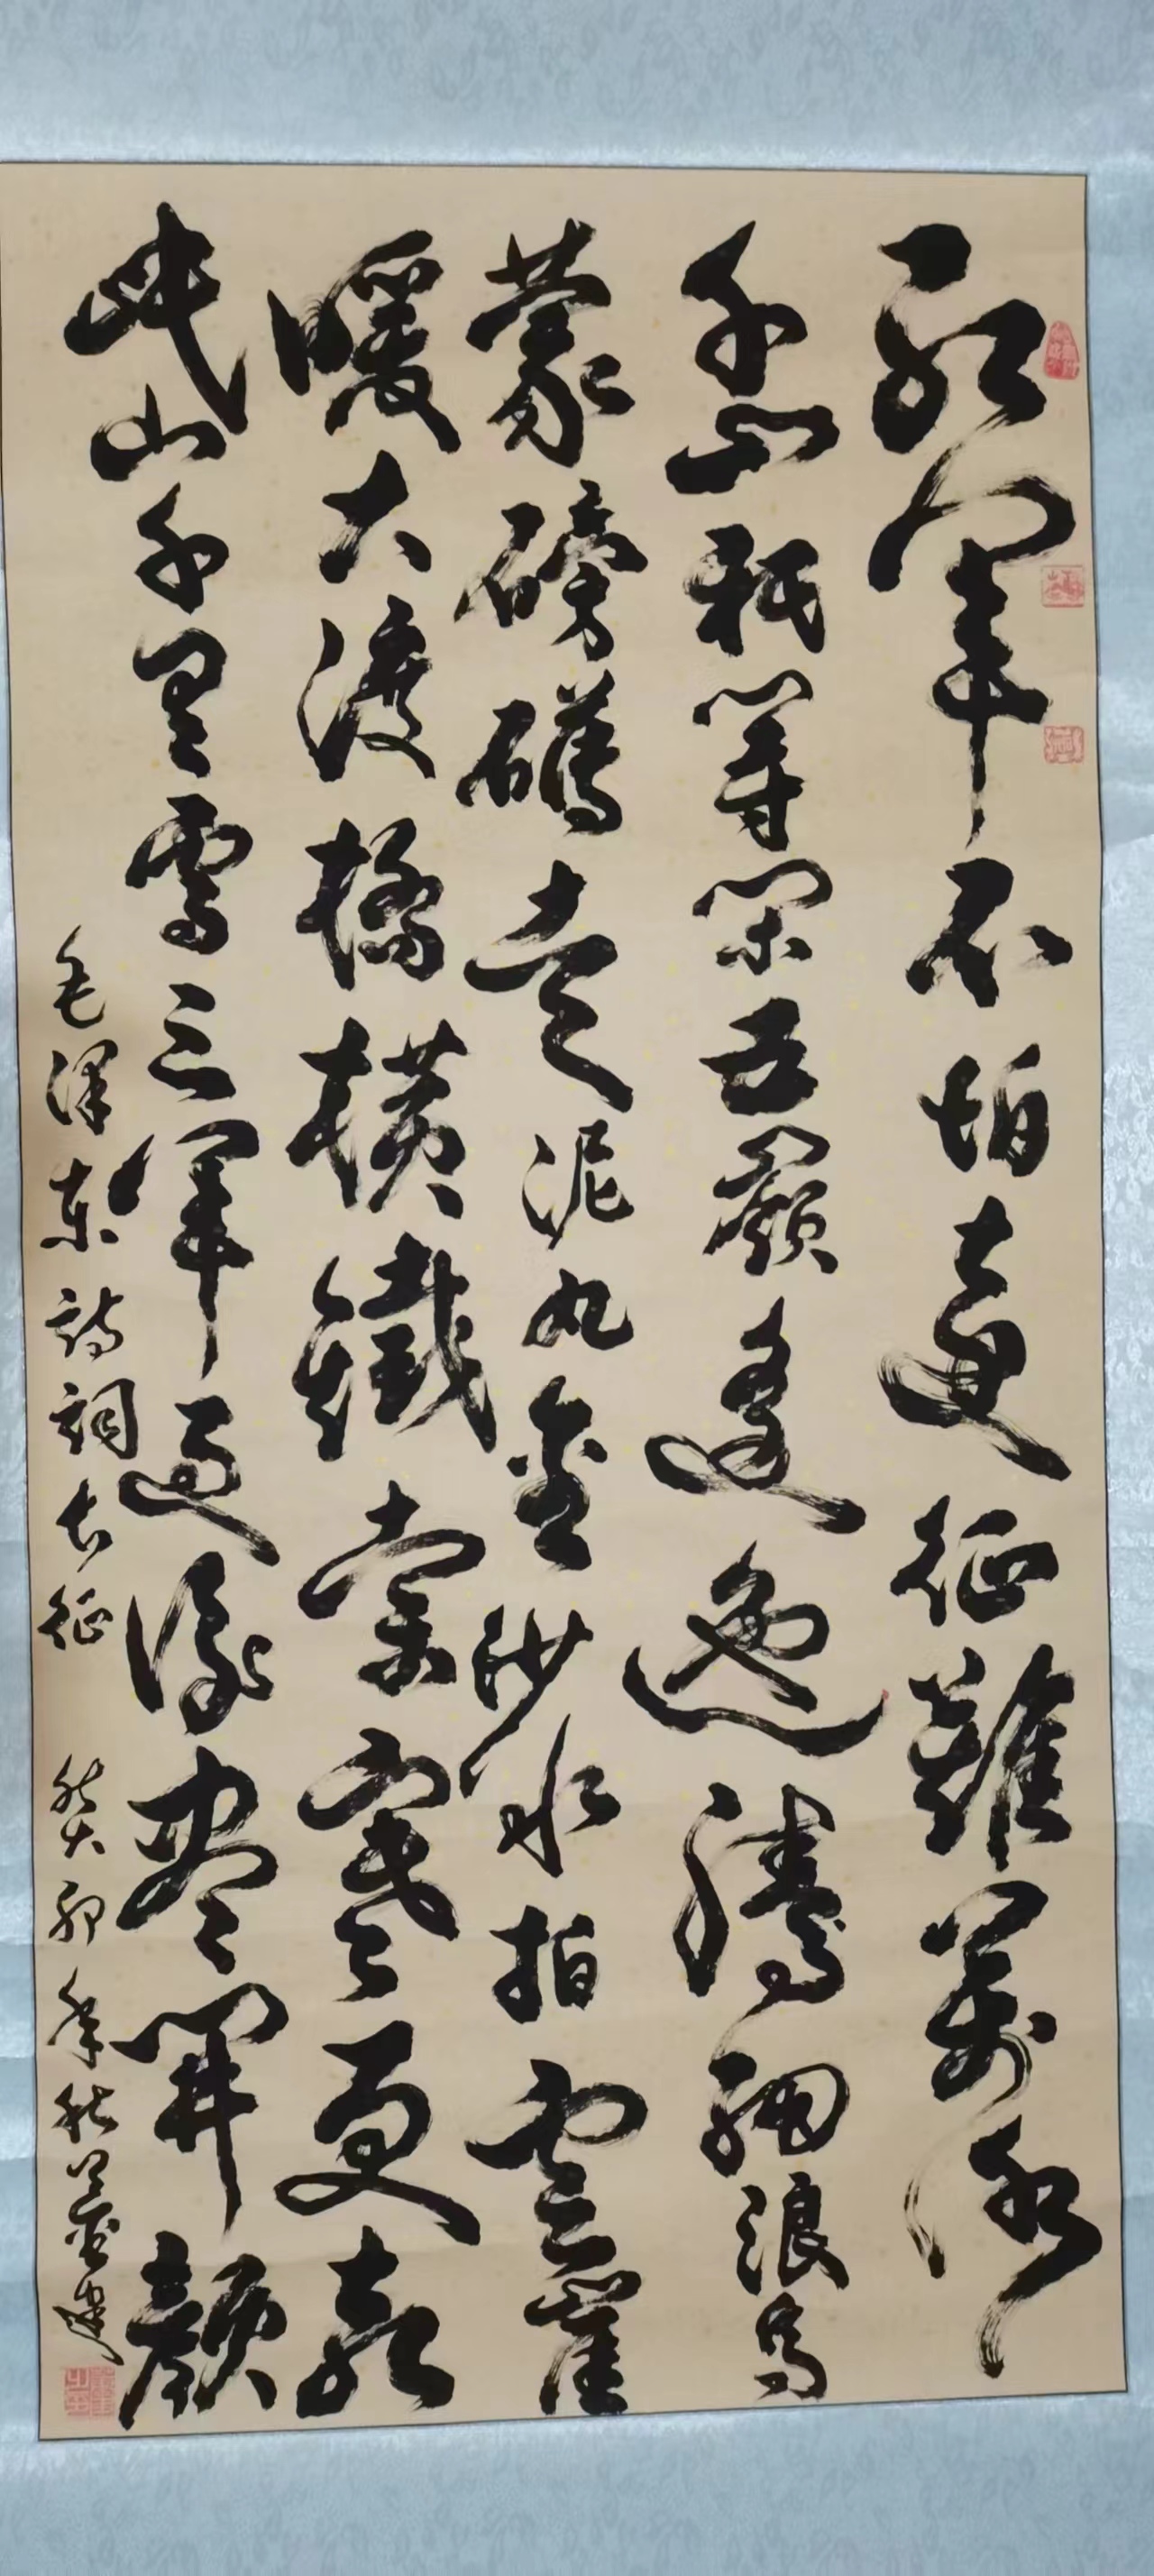 紅軍不怕遠征難萬水
千山祇等閑五嶺逶迤騰細浪烏
蒙磅礴走泥丸金沙水拍雲崖
暖大渡橋橫鐵索寒更喜
岷山千里雪三軍過後盡開顏
毛澤東詩詞長征 癸卯年秋